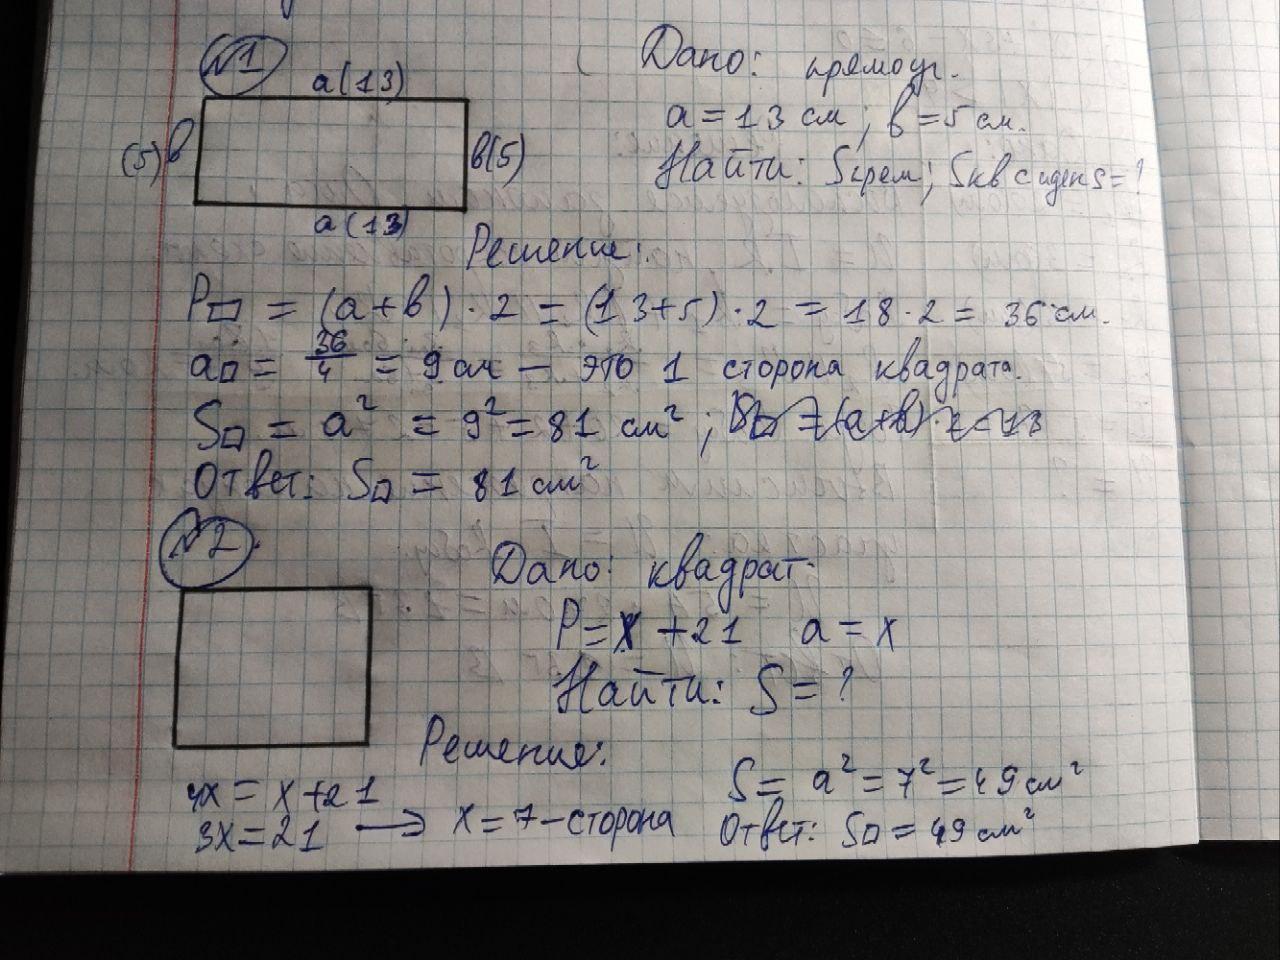 №1
a(13)
(5) b
b(5)
a(13)
Дано: прямоуг.
a = 13 см; b = 5 см.
Найти: Sкв =?
Решение:
P▭ = (a+b)·2 = (13+5)·2 = 18·2 = 36 см.
a□ = 36/4 = 9 см — это 1 сторона квадрата.
S□ = a² = 9² = 81 см²;
Ответ: S□ = 81 см²
№2
Дано: квадрат
P = x + 21 a = x
Найти: S = ?
Решение:
4x = x + 21
3x = 21 → x = 7 – сторона
S = a² = 7² = 49 см²
Ответ: S□ = 49 см²